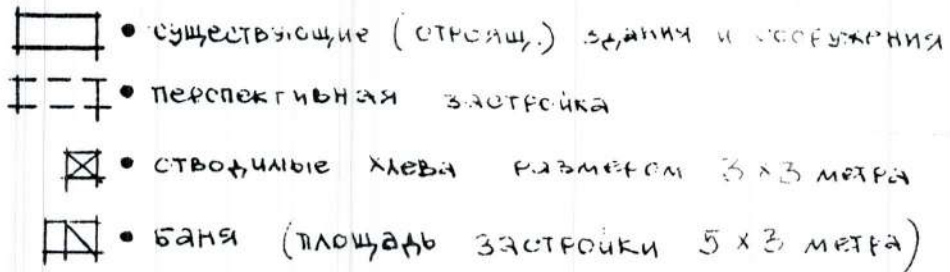 • существующие (строящ.) здания и сооружения
• перспективная застройка
• отводимые хлева размером 3 х 3 метра
• баня (площадь застройки 5 х 3 метра)